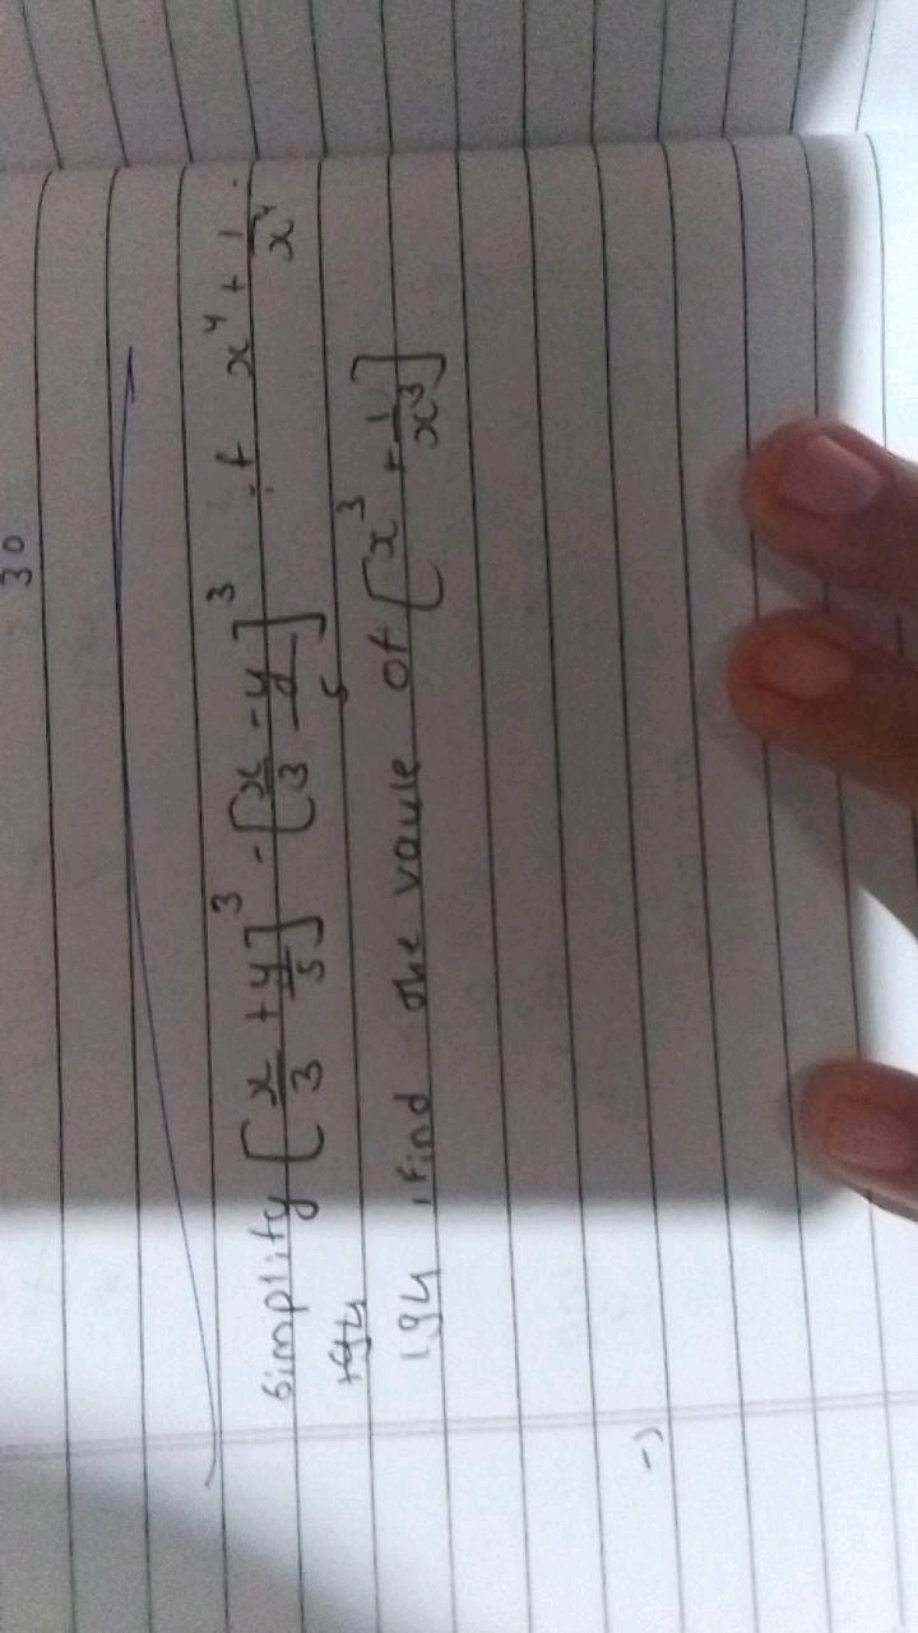 30
simplify [x/3 + y/5]³ - [x/3 - y/5]³ if x⁴ + 1/x⁴
194
194, find the vaule of [x³ + 1/x³]
-)